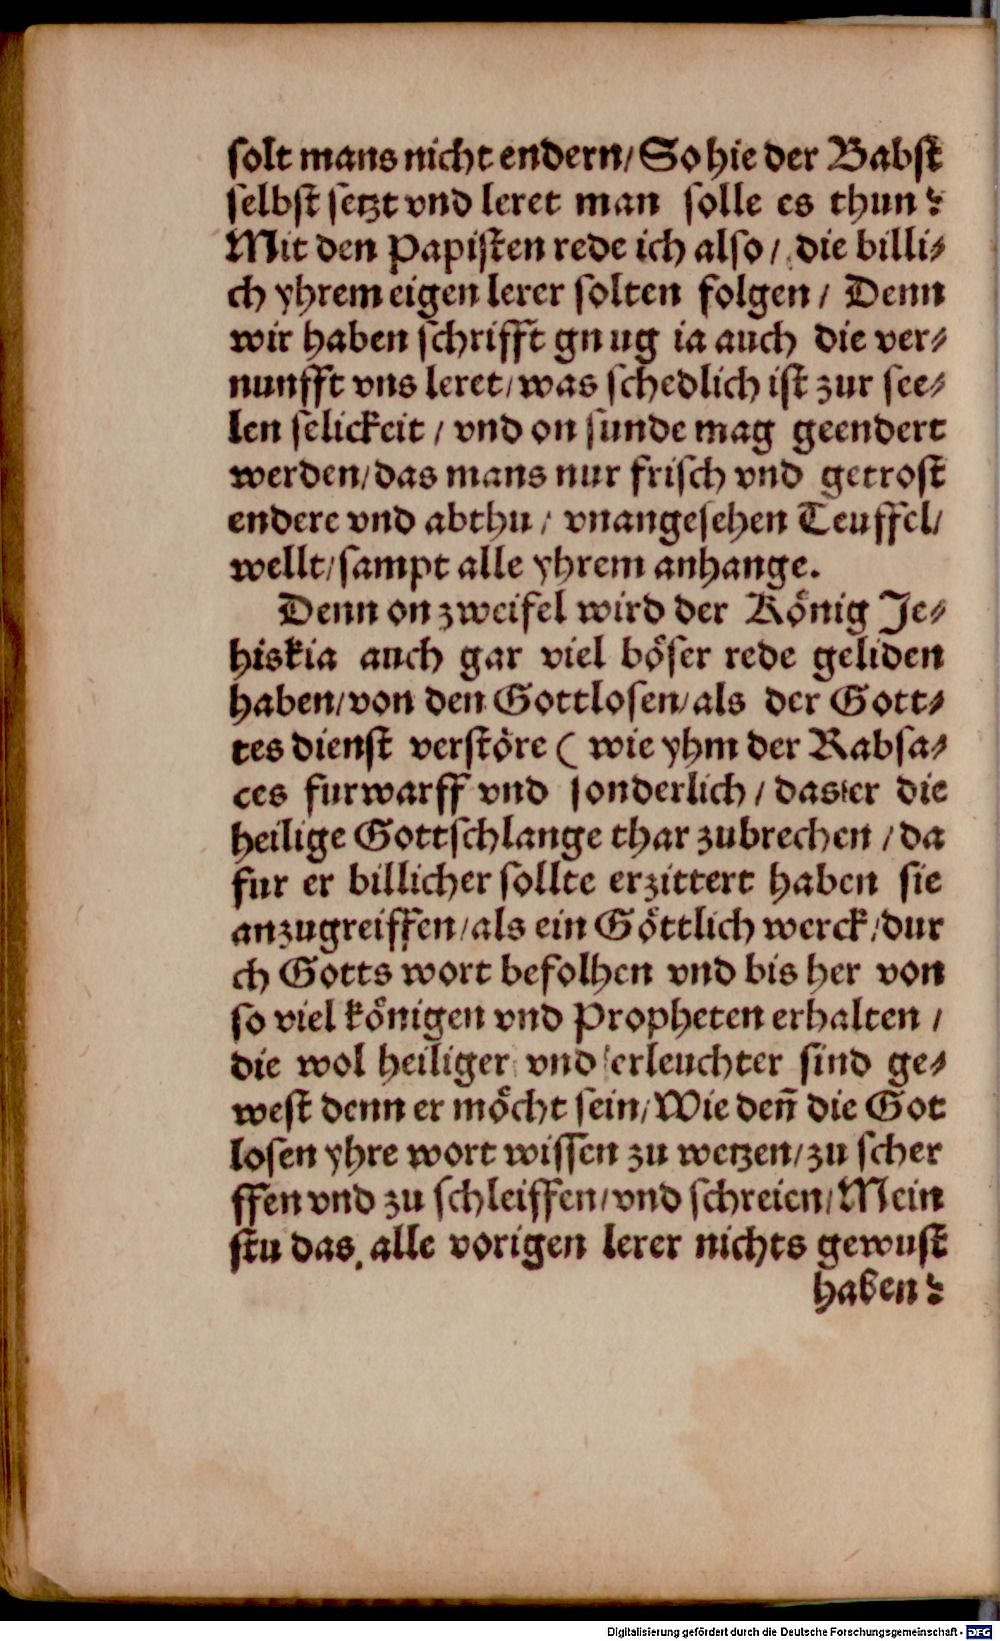 solt mans nicht endern/ So hie der Babst
selbst setzt vnd leret man solle es thun?
Mit den Papisten rede ich also/ die billi⸗
ch yhrem eigen lerer solten folgen/ Denn
wir haben schrifft gnug ia auch die ver⸗
nunfft vns leret/ was schedlich ist zur see⸗
len selickeit/ vnd on sunde mag geendert
werden/ das mans nur frisch vnd getrost
endere vnd abthu/ vnangesehen Teuffel/
wellt/ sampt alle yhrem anhange.
Denn on zweifel wird der König Je⸗
hiskia auch gar viel böser rede geliden
haben/ von den Gottlosen/ als der Gott⸗
tes dienst verstöre ( wie yhm der Rabsa⸗
ces furwarff vnd sonderlich/ das er die
heilige Gottschlange thar zubrechen/ da
fur er billicher sollte erzittert haben sie
anzugreiffen/ als ein Göttlich werck/ dur
ch Gotts wort befolhen vnd bis her von
so viel königen vnd Propheten erhalten/
die wol heiliger vnd erleuchter sind ge⸗
west denn er möcht sein/ Wie deñ die Got
losen yhre wort wissen zu wetzen/ zu scher
ffen vnd zu schleiffen/ vnd schreien/ Mein
stu das alle vorigen lerer nichts gewust
haben?
Digitalisierung gefördert durch die Deutsche Forschungsgemeinschaft - DFG